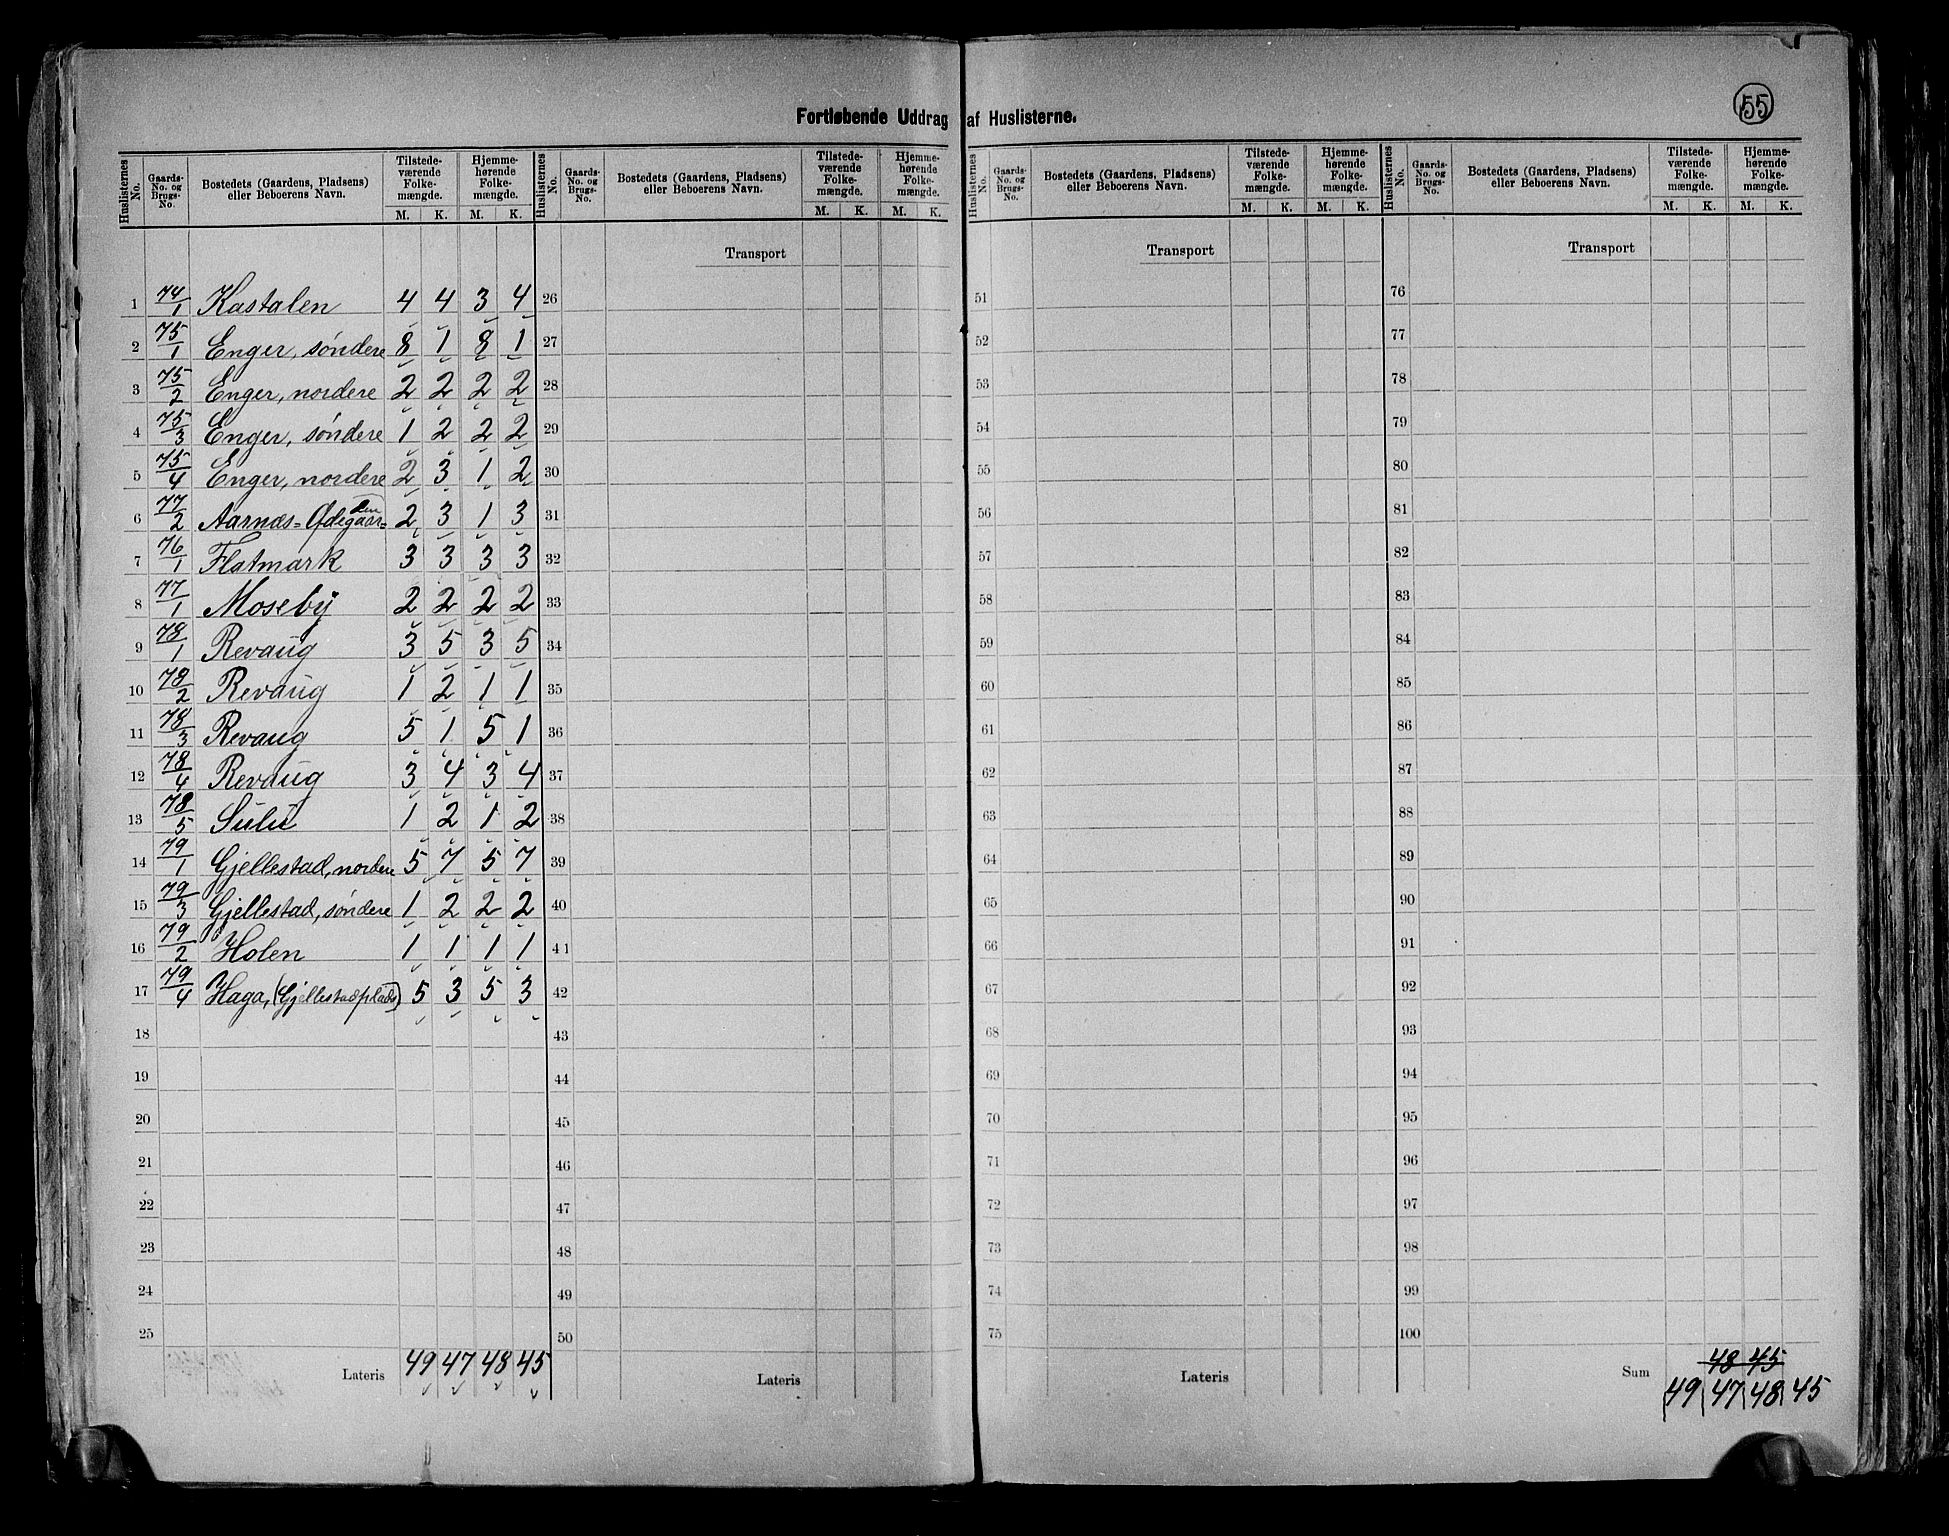 55
Fortløbende Uddrag af Huslisterne.
Huslisternes No. | Gaards-No. og Brugs-No. | Bostedets (Gaardens, Pladsens) eller Beboerens Navn. | Tilstedeværende Folkemængde. M. K. | Hjemmehørende Folkemængde. M. K. | Huslisternes No. | Gaards-No. og Brugs-No. | Bostedets (Gaardens, Pladsens) eller Beboerens Navn. | Tilstedeværende Folkemængde. M. K. | Hjemmehørende Folkemængde. M. K. | Huslisternes No. | Gaards-No. og Brugs-No. | Bostedets (Gaardens, Pladsens) eller Beboerens Navn. | Tilstedeværende Folkemængde. M. K. | Hjemmehørende Folkemængde. M. K. | Huslisternes No. | Gaards-No. og Brugs-No. | Bostedets (Gaardens, Pladsens) eller Beboerens Navn. | Tilstedeværende Folkemængde. M. K. | Hjemmehørende Folkemængde. M. K.
Transport Transport Transport
1 74/1 Kastalen 4 4 3 4 26 51 76
2 75/1 Enger, søndere 8 1 8 1 27 52 77
3 75/2 Enger, nordere 2 2 2 2 28 53 78
4 75/3 Enger, søndere 1 2 2 2 29 54 79
5 75/4 Enger, nordere 2 3 1 2 30 55 80
6 77/2 Aarnæs=Ødegaarden 2 3 1 3 31 56 81
7 76/1 Flatmark 3 3 3 3 32 57 82
8 77/1 Moseby 2 2 2 2 33 58 83
9 78/1 Revaug 3 5 3 5 34 59 84
10 78/2 Revaug 1 2 1 1 35 60 85
11 78/3 Revaug 5 1 5 1 36 61 86
12 78/4 Revaug 3 4 3 4 37 62 87
13 78/5 Sulu 1 2 1 2 38 63 88
14 79/1 Gjellestad, nordere 5 7 5 7 39 64 89
15 79/3 Gjellestad, søndere 1 2 2 2 40 65 90
16 79/2 Holen 1 1 1 1 41 66 91
17 79/4 Haga, (Gjellestadplads) 5 3 5 3 42 67 92
18 43 68 93
19 44 69 94
20 45 70 95
21 46 71 96
22 47 72 97
23 48 73 98
24 49 74 99
25 50 75 100
Lateris 49 47 48 45 Lateris Lateris Sum 48 45
49 47 48 45